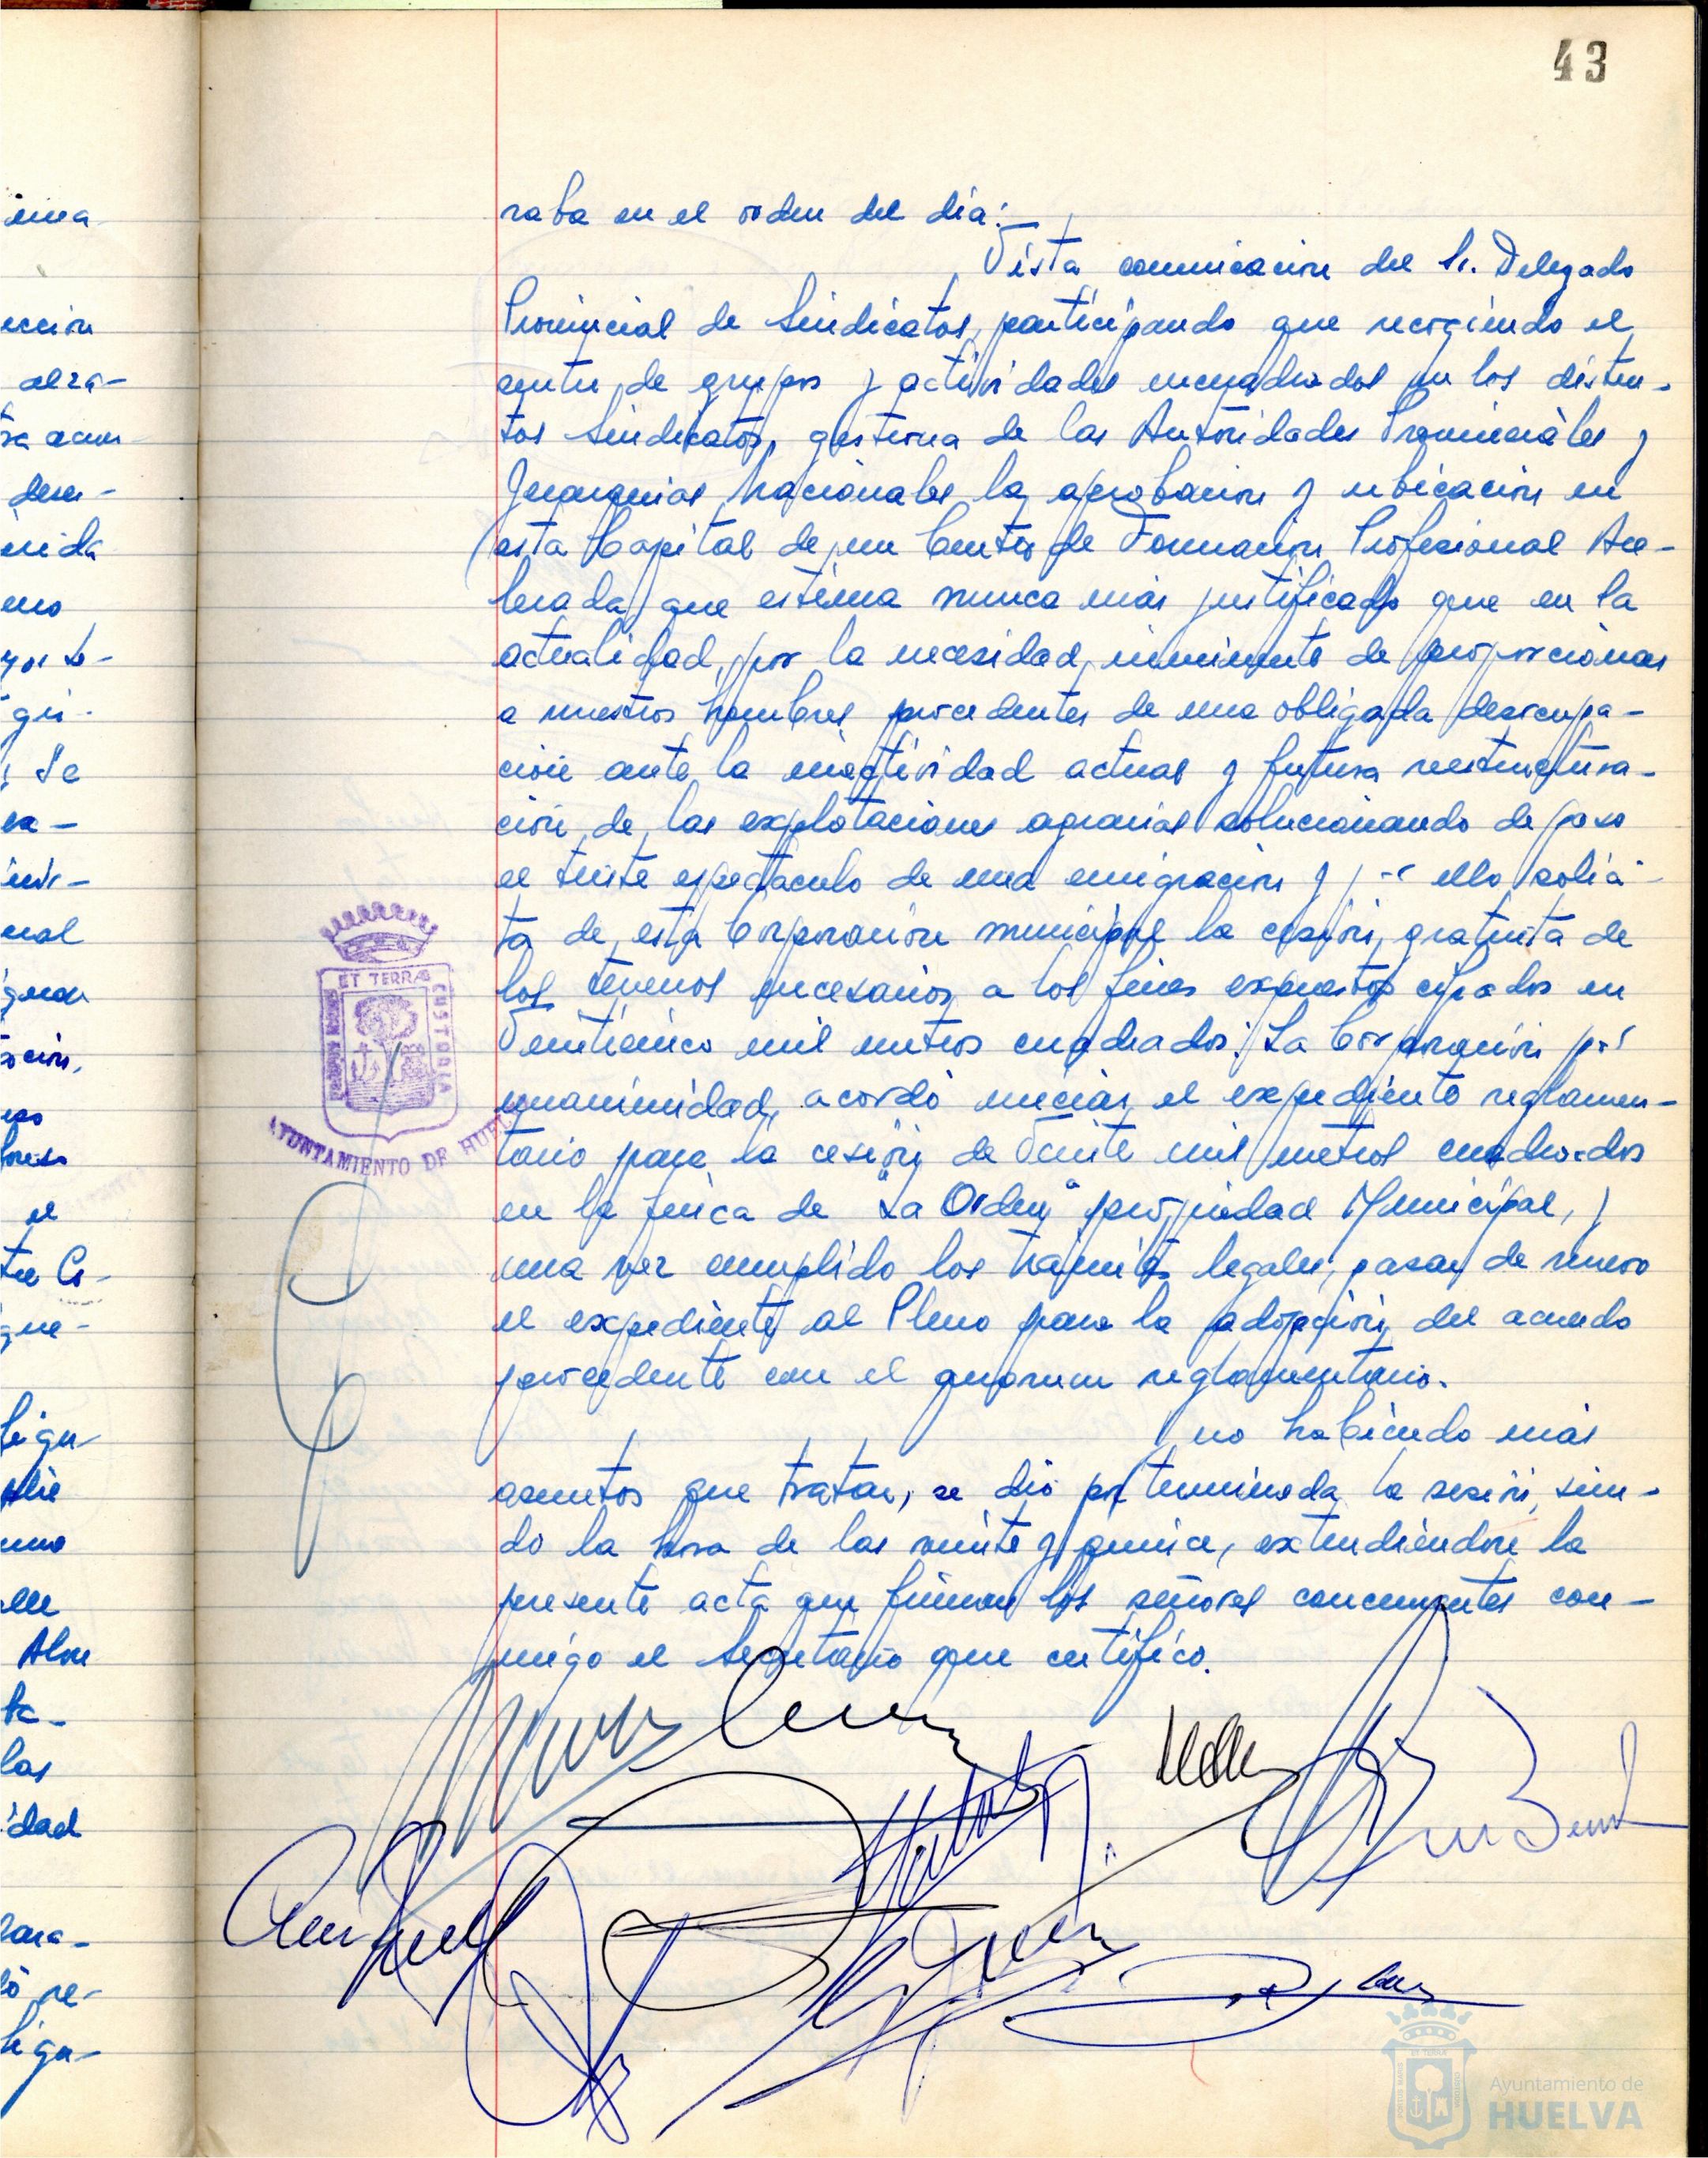 43
raba en el orden del día:
Vista comunicación del Sr. Delegado
Provincial de Sindicatos, participando que recogiendo el
sentir de grupos y actividades encuadrados en los distin-
tos Sindicatos, gestiona de las Autoridades Provinciales y
Jerarquias Nacionales, la aprobación y ubicación en
esta Capital de un Centro de Formación Profesional Ace-
lerada, que estima nunca más justificado que en la
actualidad, por la necesidad inminente de proporcionar
a nuestros hombres procedentes de una obligada desocupa-
ción ante la inactividad actual y futura reestructura-
ción de las explotaciones agrarias solucionando de paso
el triste espectaculo de una emigración y por ello solici-
ta de esta Corporación municipal la cesión gratuita de
los terrenos necesarios a los fines expuestos cifrados en
Veinticinco mil metros cuadrados: La Corporación por
unanimidad, acordó iniciar el expediente reglamen-
tario para la cesión de Veinte mil metros cuadrados
en la finca de "La Orden" propiedad Municipal, y
una vez cumplido los trámites legales, pasar de nuevo
el expediente al Pleno para la adopción del acuerdo
procedente con el quorum reglamentario.
Y no habiendo más
asuntos que tratar, se dió por terminada la sesión, sien-
do la hora de las veinte y quince, extendiéndose la
presente acta que firman los señores concurrentes con-
migo el Secretario que certifico.
ET TERRAE
CUSTODIA
AYUNTAMIENTO DE HUELVA
Ayuntamiento de
HUELVA